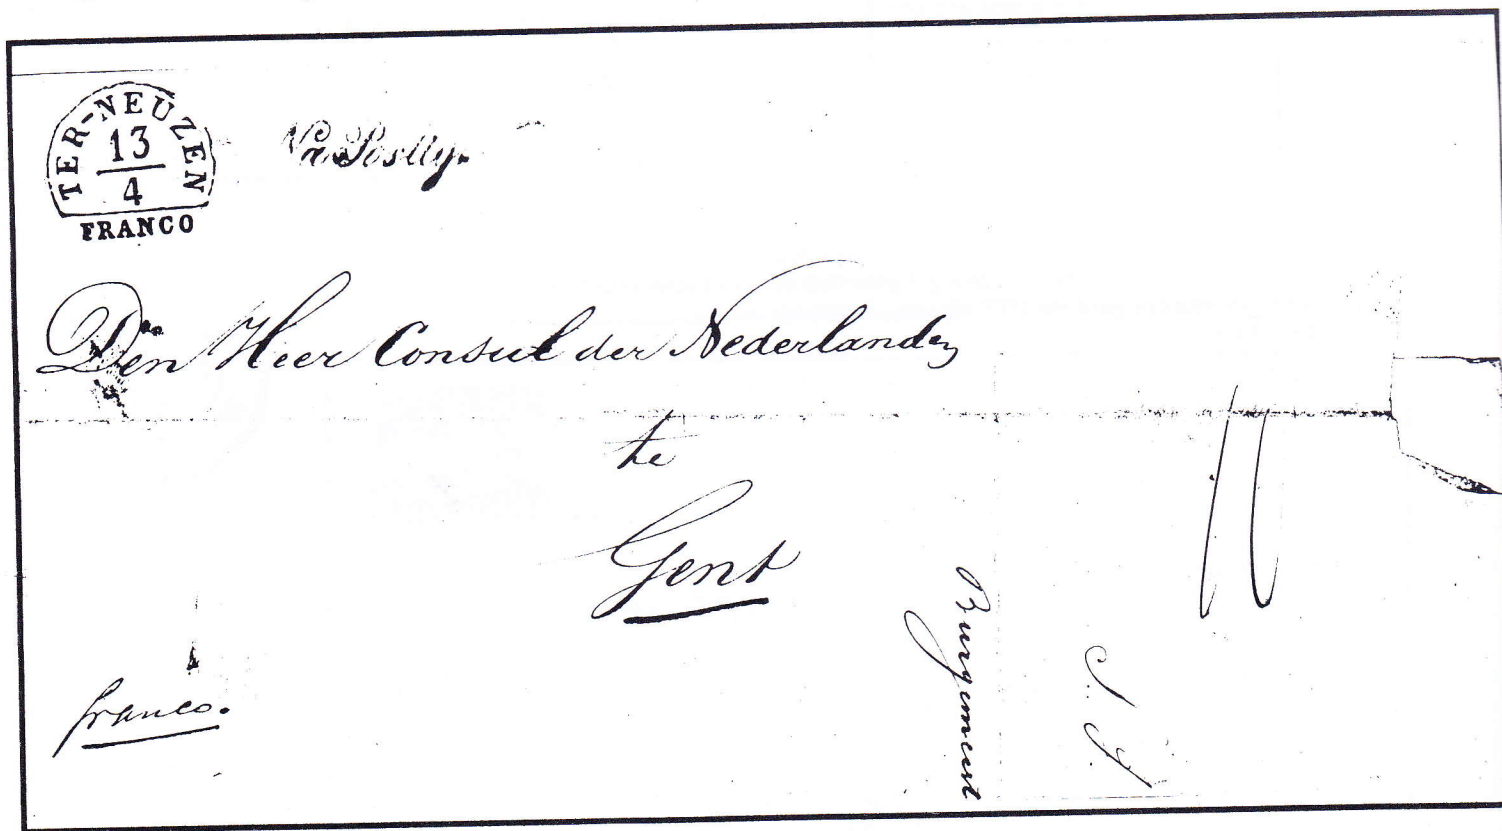 TER-NEUZEN
13
4
FRANCO
Na Postty.
Den Heer Consul der Nederlanden
te
Gent
franco.
Burgemeest